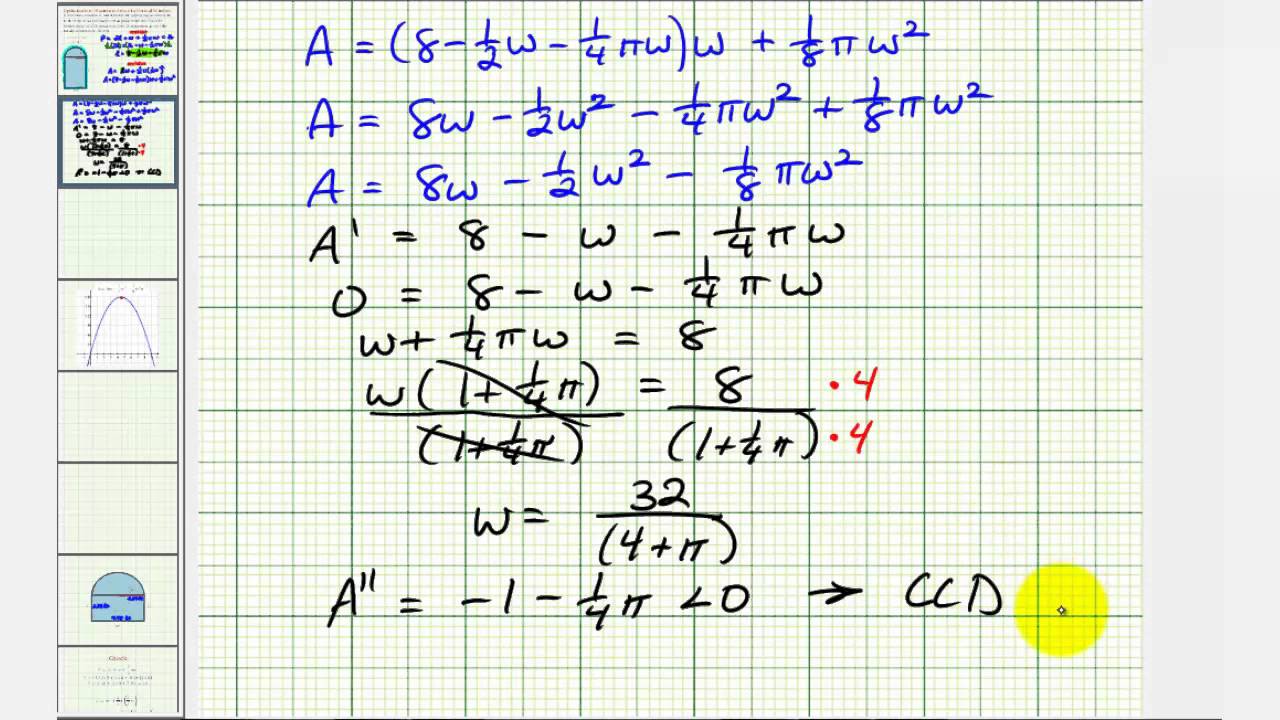 A = (8 - 1/2 w - 1/4 πw)w + 1/8 πw²
A = 8w - 1/2 w² - 1/4 πw² + 1/8 πw²
A = 8w - 1/2 w² - 1/8 πw²
A' = 8 - w - 1/4 π w
0 = 8 - w - 1/4 π w
w + 1/4 π w = 8
w(1 + 1/4 π) / (1 + 1/4 π) = 8 / (1 + 1/4 π) · 4 · 4
w = 32 / (4 + π)
A'' = -1 - 1/4 π < 0 → CCD